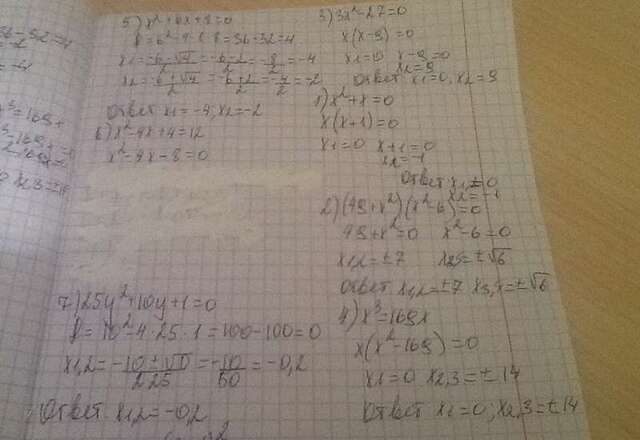 5) x²+6x+8=0
D=6²-4·1·8=36-32=4
x1=-6-√4/2=-6-2/2=-8/2=-4
x2=-6+√4/2=-6+2/2=-4/2=-2
Ответ x1=-4; x2=-2
6) x²-4x+4=12
x²-4x-8=0
7) 25y²+10y+1=0
D=10²-4·25·1=100-100=0
x1,2=-10±√0/2·25=-10/50=-0,2
Ответ x1,2=-0,2
3) 3x²-27=0
x(x-9)=0
x1=0 x-9=0
x2=9
Ответ x1=0; x2=9
1) x²+x=0
x(x+1)=0
x1=0 x+1=0
x2=-1
Ответ x1=0
x2=-1
2) (49+x²)(x²-6)=0
49+x²=0 x²-6=0
x1,2=±7 =±√6
Ответ x1,2=±7 x3,4=±√6
4) x³=169x
x(x²-169)=0
x1=0 x2,3=±14
Ответ x1=0; x2,3=±14